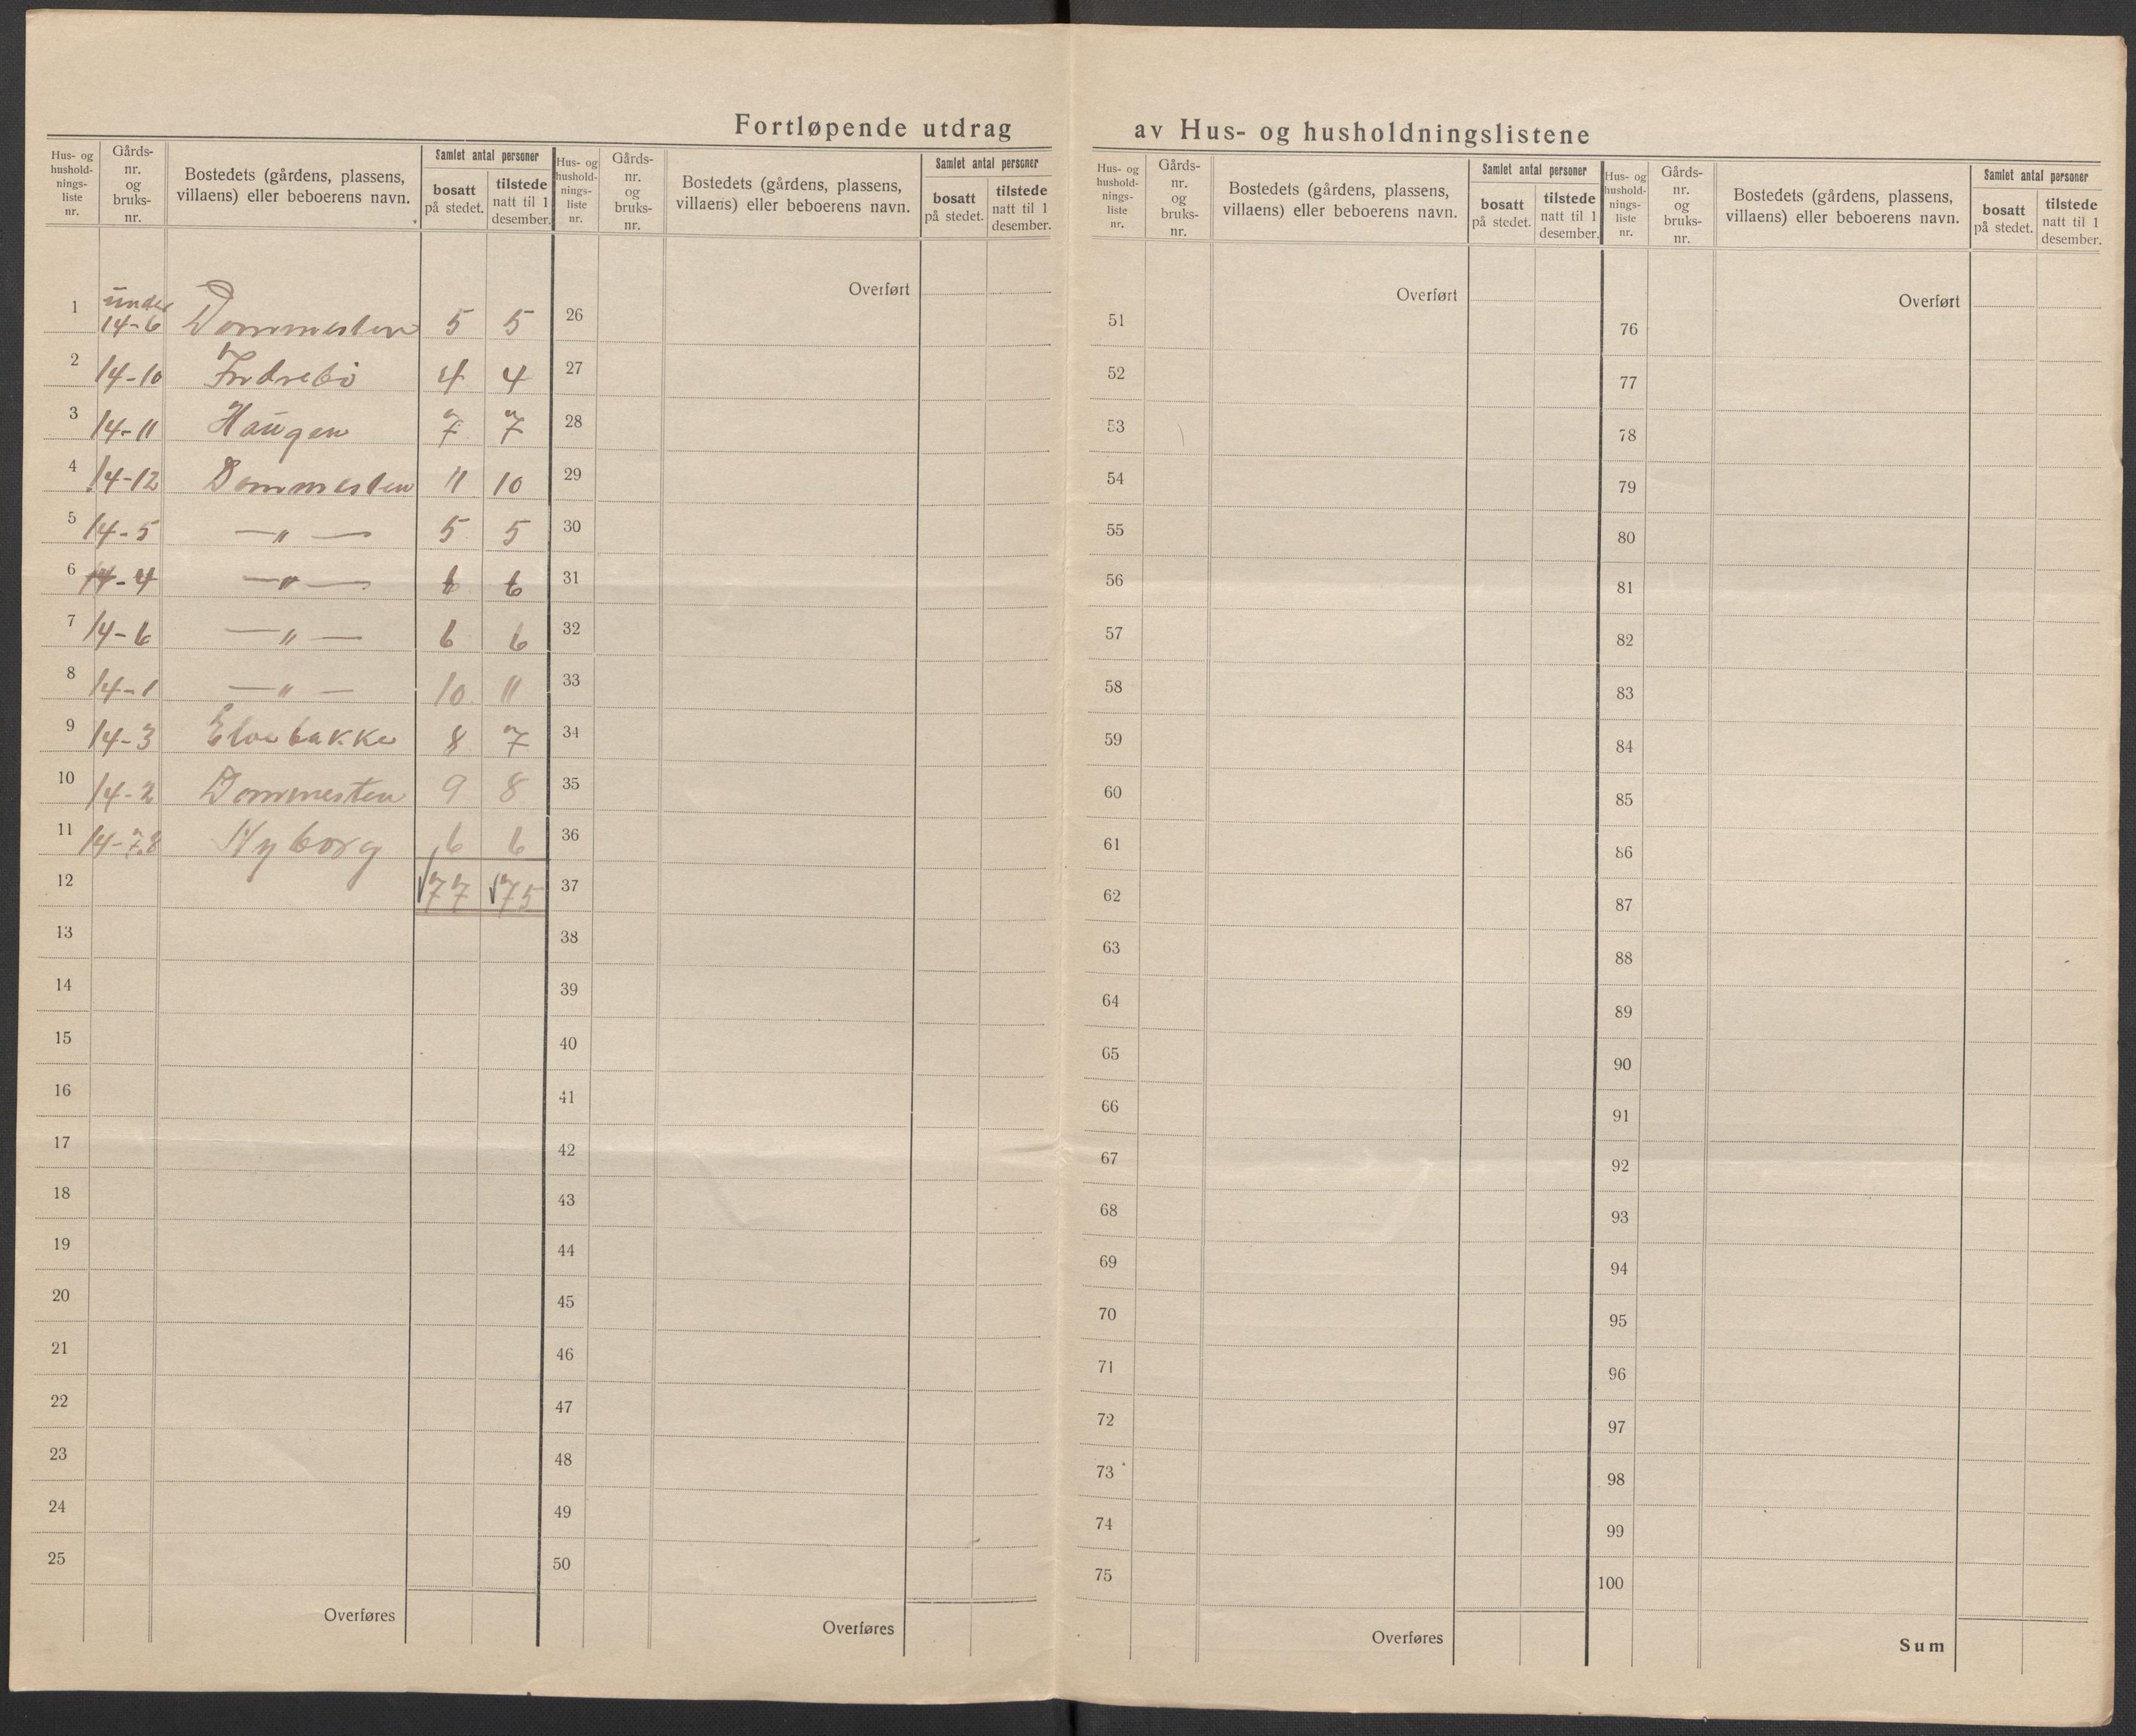 Fortløpende utdrag av Hus- og husholdningslistene
Hus- og hushold-nings-liste nr. Gårds-nr. og bruks-nr. Bostedets (gårdens, plassens, villaens) eller beboerens navn. Samlet antal personer bosatt på stedet. tilstede natt til 1 desember.
1 under 14-6 Dommesten 5 5
2 14-10 Indrebö 4 4
3 14-11 Haugen 7 7
4 14-12 Dommesten 11 10
5 14-5 —„— 5 5
6 14-4 —„— 6 6
7 14-6 —„— 6 6
8 14-1 —„— 10 11
9 14-3 Elvebakke 8 7
10 14-2 Dommesten 9 8
11 14-7.8 Nyborg 6 6
12 77 75
13
14
15
16
17
18
19
20
21
22
23
24
25
Overføres
Hus- og hushold-nings-liste nr. Gårds-nr. og bruks-nr. Bostedets (gårdens, plassens, villaens) eller beboerens navn. Samlet antal personer bosatt på stedet. tilstede natt til 1 desember.
Overført
26
27
28
29
30
31
32
33
34
35
36
37
38
39
40
41
42
43
44
45
46
47
48
49
50
Overføres
Hus- og hushold-nings-liste nr. Gårds-nr. og bruks-nr. Bostedets (gårdens, plassens, villaens) eller beboerens navn. Samlet antal personer bosatt på stedet. tilstede natt til 1 desember.
Overført
51
52
53
54
55
56
57
58
59
60
61
62
63
64
65
66
67
68
69
70
71
72
73
74
75
Overføres
Hus- og hushold-nings-liste nr. Gårds-nr. og bruks-nr. Bostedets (gårdens, plassens, villaens) eller beboerens navn. Samlet antal personer bosatt på stedet. tilstede natt til 1 desember.
Overført
76
77
78
79
80
81
82
83
84
85
86
87
88
89
90
91
92
93
94
95
96
97
98
99
100
Sum